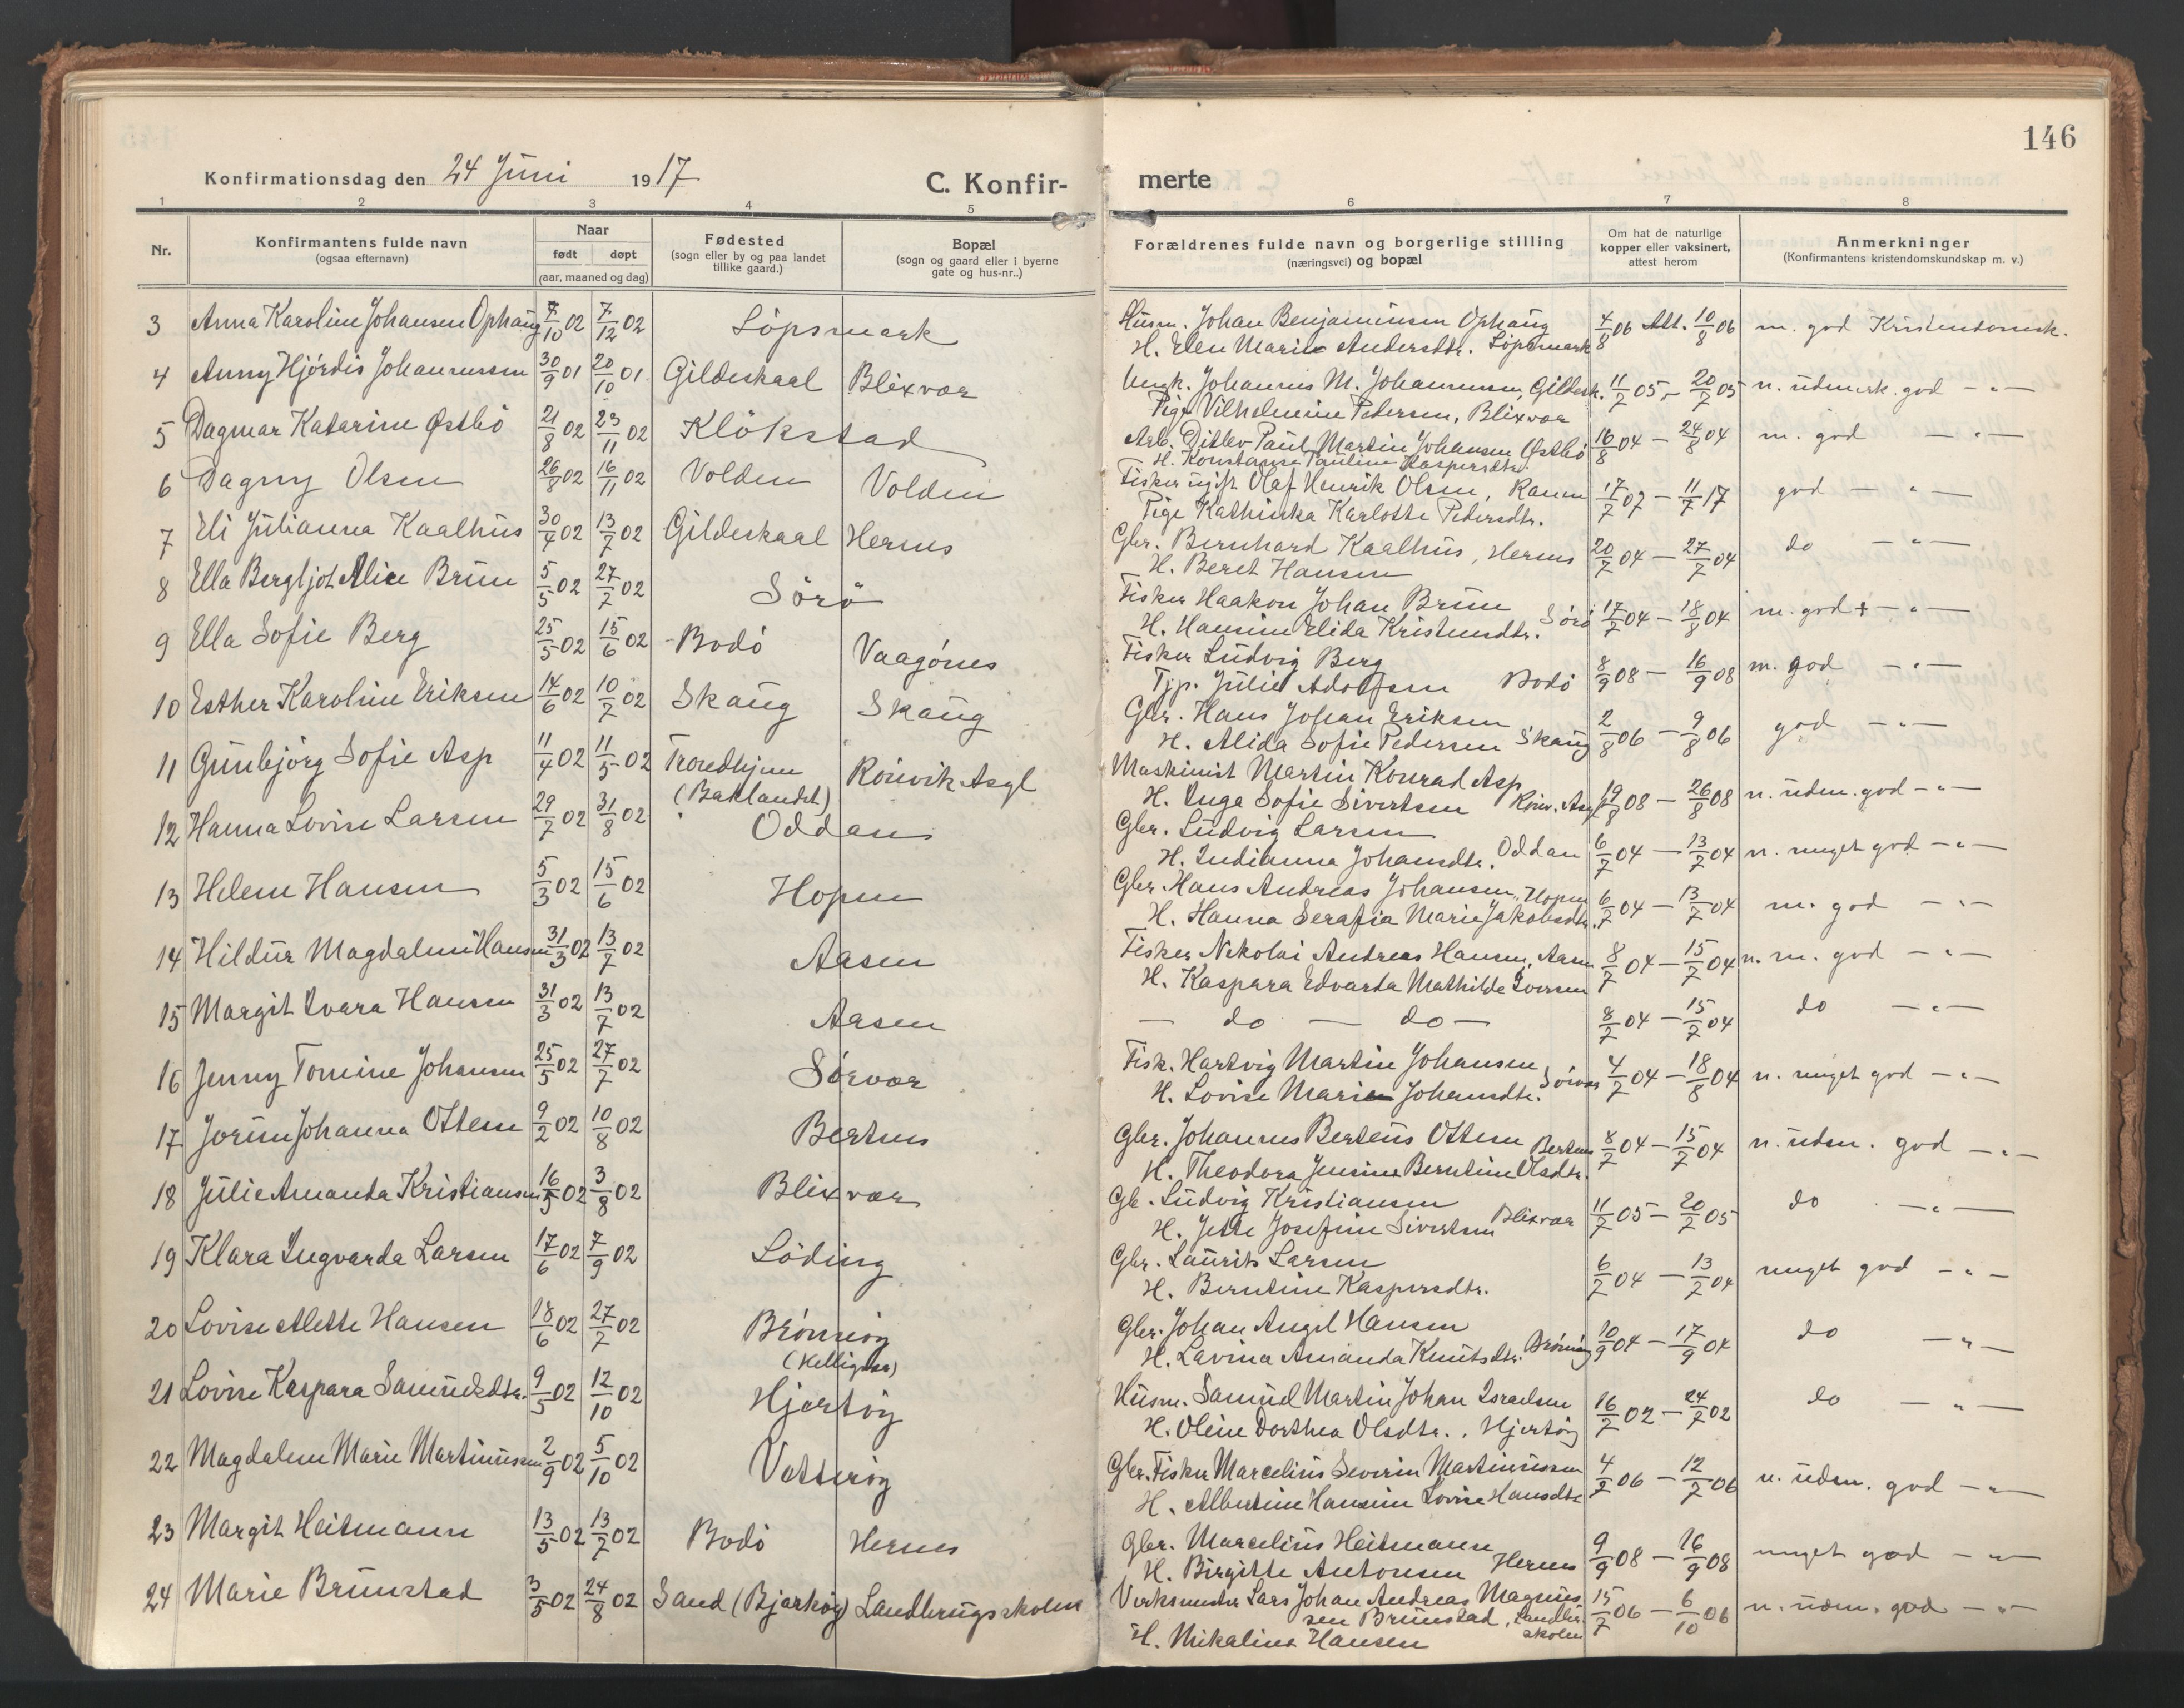 146
Konfirmationsdag den 24 Juni 1917
C. Konfir-
merte
1 2 3 4 5 6 7 8
Nr.
Konfirmantens fulde navn
(ogsaa efternavn)
Naar
født døpt
(aar, maaned og dag)
Fødested
(sogn eller by og paa landet
tillike gaard.)
Bopæl
(sogn og gaard eller i byerne
gate og hus-nr..)
Forældrenes fulde navn og borgerlige stilling
(næringsvei) og bopæl
Om hat de naturlige
kopper eller vaksinert,
attest herom
Anmerkninger
(Konfirmantens kristendomskundskap m. v.)
3 Anna Karoline Johansen Ophaug 7/10 02 7/12 02 Löpsmark
Husm. Johan Benjaminsen Ophaug
H. Elen Marie Andersdtr. Löpsmark 4/8 06 Att. 10/8 06 m. god Kristendomsk.
4 Anny Hjördis Johannessen 30/9 01 20/10 01 Gildeskaal Blixvær
Ungk. Johannes M. Johannessen, Gildesk. 11/7 05 - 20/7 05 n. udmerk. god - " -
Pige Vilhelmine Pedersen, Blixvær
5 Dagmar Katarine Östbö 21/8 02 23/11 02 Klökstad
Arb. Ditlev Paul Martin Johansen Östbö 16/8 04 - 24/8 04 m. god - " -
H. Konstanse Pauline Kaspersdtr.
6 Dagny Olsen 26/8 02 16/11 02 Volden Volden
Fisker ugift Olaf Henrik Olsen, Ranen 17/7 07 - 11/7 17 god - " -
Pige Kathinka Karlotte Pedersdtr.
7 Eli Julianna Kaalhus 30/4 02 13/7 02 Gildeskaal Hernes
Gbr. Bernhard Kaalhus, Hernes 20/7 04 - 27/7 04 do - " -
H. Beret Hansen
8 Ella Bergljot Alice Brun 5/5 02 27/7 02 Sörö
Fisker Haakon Johan Brun
H. Hansine Elida Kristensdtr. Sörö 17/7 04 - 18/8 04 m. god + - " -
9 Ella Sofie Berg 25/5 02 15/6 02 Bodö Vaagönes
Fisker Ludvig Berg
Tjp. Julie Adolfsen Bodö 8/9 08 - 16/9 08 m. god - " -
10 Esther Karoline Eriksen 14/6 02 10/7 02 Skaug Skaug
Gbr. Hans Johan Eriksen
H. Alida Sofie Pedersen Skaug 2/8 06 - 9/8 06 god - " -
11 Gunbjörg Sofie Asp 11/4 02 11/5 02 Trondhjem Rönvik Asyl
(Baklandet)
Maskinist Martin Konrad Asp
H. Inga Sofie Sivertsen Rönv. Asyl 19/8 08 - 26/8 08 n. udm. god - " -
12 Hanna Lovise Larsen 29/7 02 31/8 02 Oddan
Gbr. Ludvig Larsen
H. Indianna Johansdtr. Oddan 6/7 04 - 13/7 04 n. meget god - " -
13 Helene Hansen 5/3 02 15/6 02 Hopen
Gbr. Hans Andreas Johansen, Hopen 6/7 04 - 13/7 04 m. god - " -
H. Hanna Serafia Marie Jakobsdtr.
14 Hildur Magdalene Hansen 31/3 02 13/7 02 Aasen
Fisker Nikolai Andreas Hansen, Aasen 8/7 04 - 15/7 04 n. m. god - " -
H. Kaspara Edvarda Mathilde Iversen
15 Margit Ivara Hansen 31/3 02 13/7 02 Aasen
- do - do - 8/7 04 - 15/7 04 do - " -
16 Jenny Tomine Johansen 25/5 02 27/7 02 Sörvær
Fisk. Hartvig Martin Johansen
H. Lovise Marie Johansdtr. Sörvær 4/7 04 - 18/8 04 n. meget god - " -
17 Jorun Johanna Ottesen 9/2 02 10/8 02 Bertnes
Gbr. Johannes Berteus Ottesen Bertnes 8/7 04 - 15/7 04 n. udm. god - " -
H. Theodora Jensine Berntine Olsdtr.
18 Julie Amanda Kristiansen 16/5 02 3/8 02 Blixvær
Gbr. Ludvig Kristiansen
H. Jette Josefine Sivertsen Blixvær 11/7 05 - 20/7 05 do - " -
19 Klara Ingvarda Larsen 17/6 02 7/9 02 Löding
Gbr. Laurits Larsen
H. Berntine Kaspersdtr. 6/7 04 - 13/7 04 meget god - " -
20 Lovise Alette Hansen 18/6 02 27/7 02 Brönnöy
Gbr. Johan Angel Hansen
H. Lavina Amanda Knutsdtr. Brönnöy 10/9 04 - 17/9 04 do - " -
21 Lovise Kaspara Samuelsdtr. 9/5 02 12/10 02 Hjertöy
Husm. Samuel Martin Johan Israelsen 16/7 02 - 24/7 02 do - " -
H. Oline Dorthea Olsdtr., Hjertöy
22 Magdalene Marie Martinussen 2/9 02 5/10 02 Vatteröy
Gbr. Fisker Marcelius Severin Martinussen 4/7 06 - 12/7 06 n. udm. god - " -
H. Albertine Hansine Lovise Hansdtr
23 Margit Heitmann 13/5 02 13/7 02 Bodö Hernes
Gbr. Marcelius Heitmann
H. Birgitte Antonsen Hernes 9/9 08 - 16/9 08 meget god - " -
24 Marie Brunstad 3/5 02 24/8 02 Sand (Bjarköy) Landbrugsskolen
Verksmester Lars Johan Andreas Magnus 15/7 06 - 6/10 06 n. udm. god - " -
sen Brunstad, Landbr.
skolen
H. Mikaline Hansen